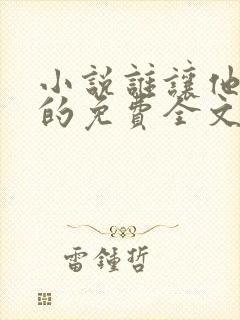 小說誰讓他
的免費全文
雷鍾哲